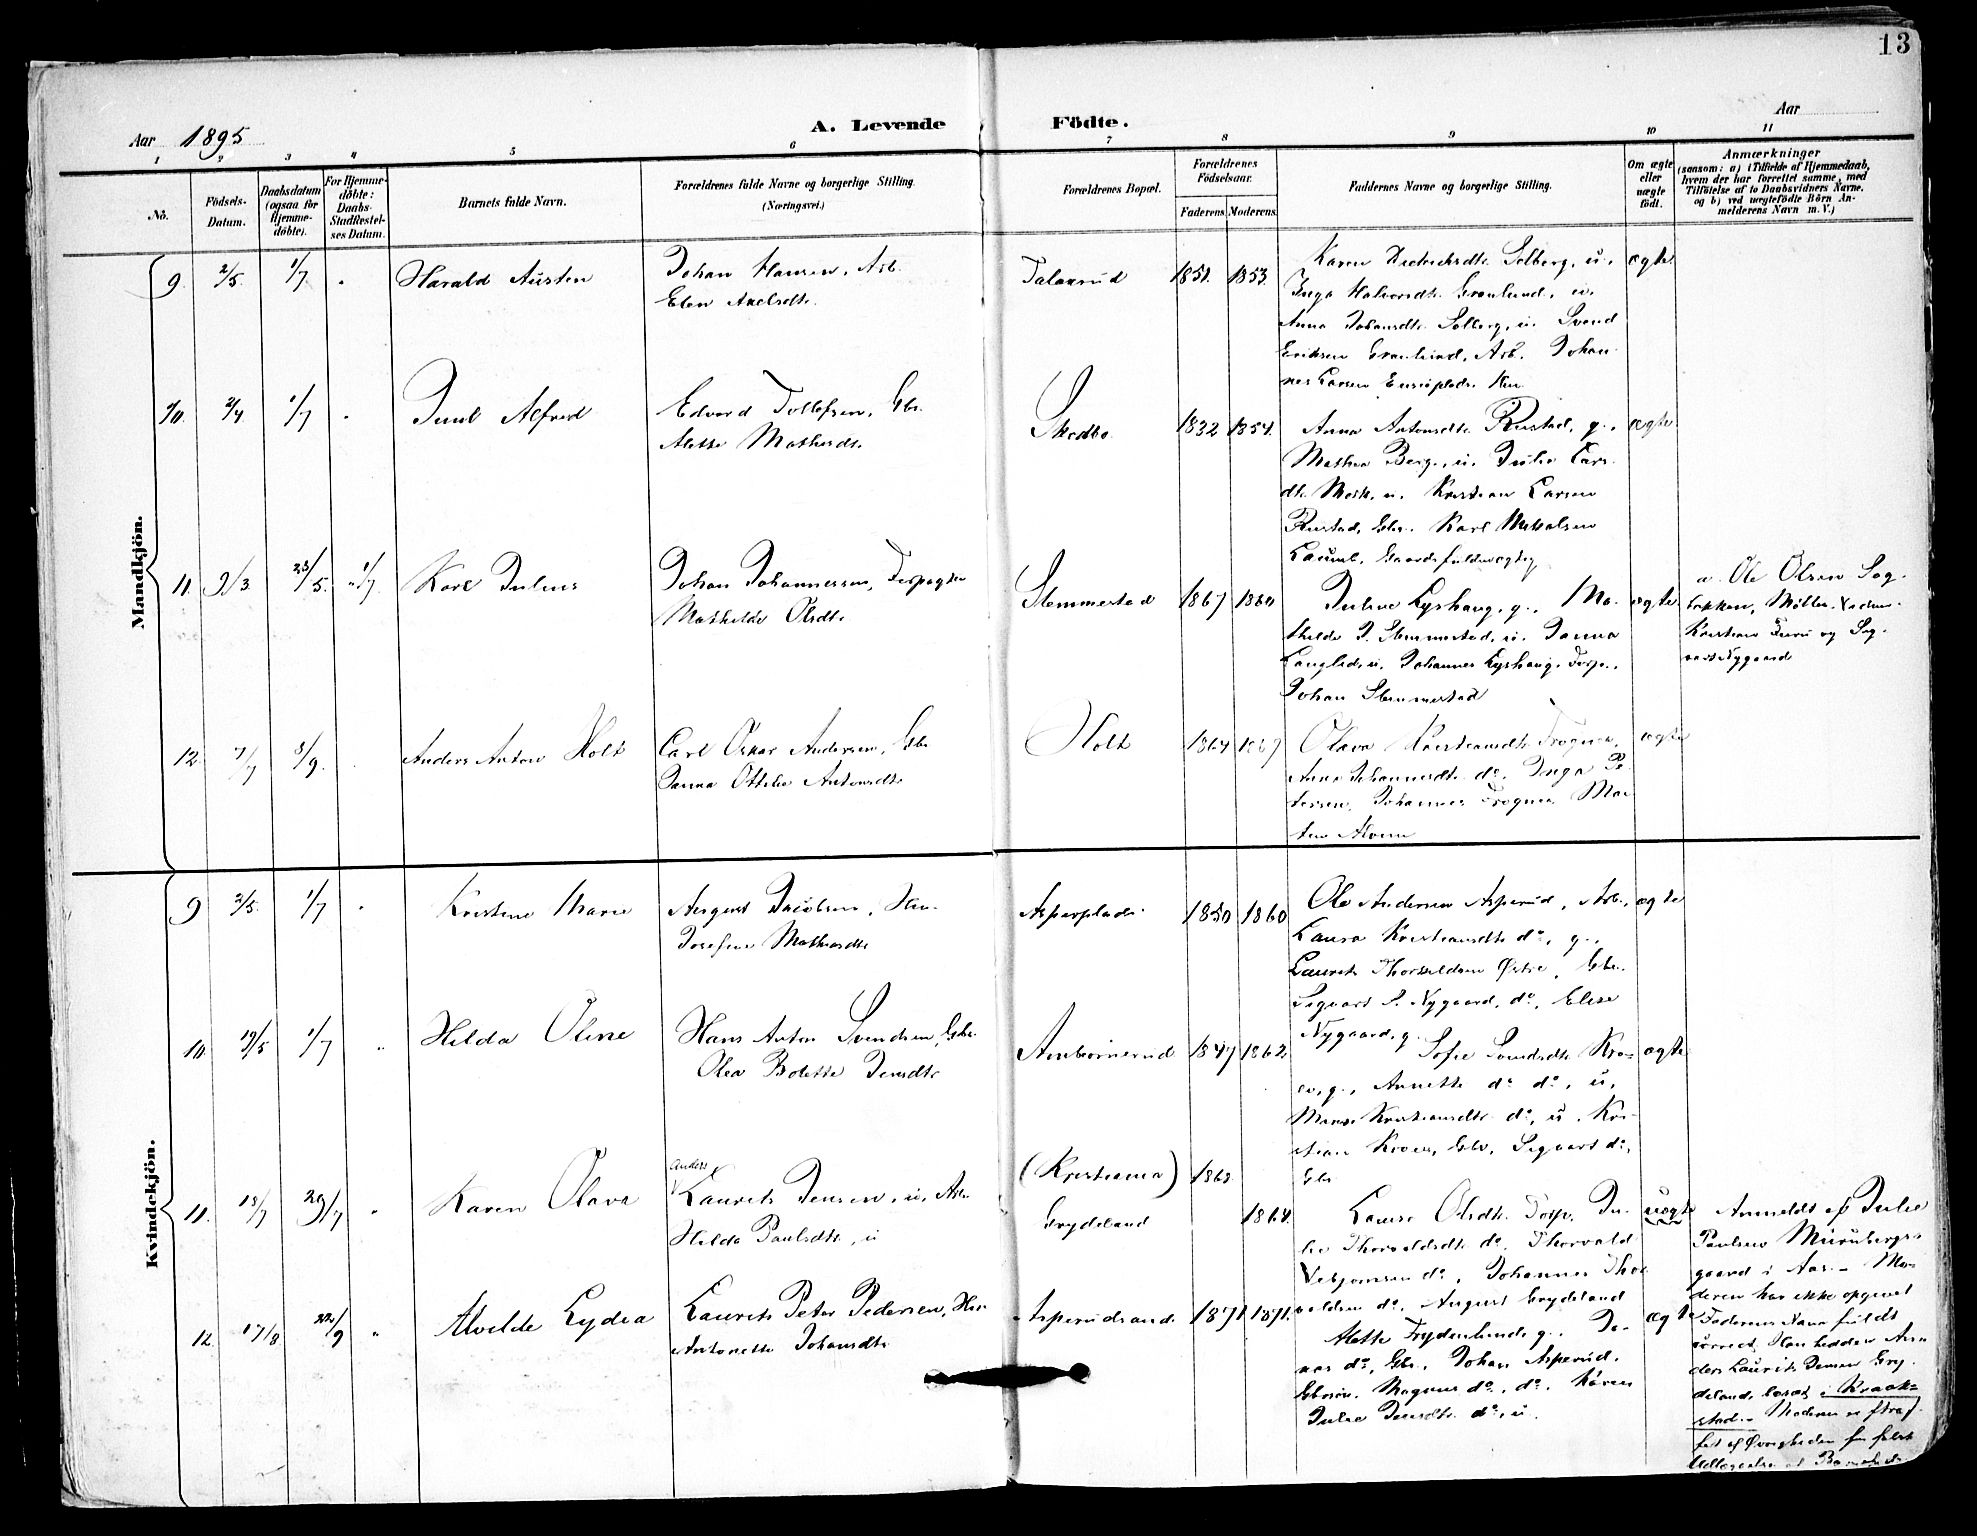 13
Aar 1895
A. Levende Födte.
Aar
1 2 3 4 5 6 7 8 9 10 11
No.
Födsels-Datum.
Daabsdatum (ogsaa for Hjemme-döbte).
For Hjemme-döbte: Daabs-Stadfæstel-ses Datum.
Barnets fulde Navn.
Forældrenes fulde Navne og borgerlige Stilling. (Næringsvei.)
Forældrenes Bopæl.
Forældrenes Födselsaar.
Faderens Moderens
Faddernes Navne og borgerlige Stilling.
Om ægte eller uægte födt.
Anmærkninger
(saasom: a) i Tilfælde af Hjemmedaab,
hvem der har forrettet samme, med
Tilföielse af to Daabsvidners Navne.
og b) ved uægtefödte Börn An-
melderens Navn m. V.)
Mandkjön.
9. 2/5. 1/7 Harald Austen
Johan Hansen, Arb.
Elen Axelsdtr.
Talaxrud 1851. 1853.
Karen Diderichsdtr. Solberg, u.,
Inga Halvorsdtr. Grønlund, u.
Anna Johansdtr. Solberg, u. Svend
Eriksen Grønlund, Arb. Johan-
nes Larsen
ægte
10. 2/4. 1/7 Juul Alfred
Edvard Tollefsen, Gbr.
Alette Mathisdtr.
Skedbo. 1832 1854.
Anna Antonsdtr. Rustad, g.,
Mathea Berg, u. Julie Lars-
dtr. Mork, u. Kristian Larsen
Rustad, Gbr. Karl Mikalsen
Laumb, Gaardsfuldmægtig
ægte
11. 9/3. 23/5. 1/7. Karl Julius
Johan Johannessen, Forpagter
Mathilde Olsdtr.
Slemmestad 1867 1860
Juline Lyshaug, g., Ma-
thilde J. Slemmestad, u. Janna
Langlid, u. Johannes Lyshaug, Forp.,
Johan Slemmestad
ægte
a. Ole Olsen Sag-
bakken, Møller.
Kristian Furu og Sig-
vart Nygaard
12. 7/7 8/9. Anders Anton Holt
Carl Oskar Andersen, Gbr
Janna Ottilie Antonsdtr.
Holt 1864 1869
Olava Kristiansdtr. Frogner,
Anna Johannesdtr. do. Inga Pe-
dersen, Johannes Frogner, Mar-
ten Alvern
ægte
Kvindekjön.
9 2/5. 1/7 Kristine Marie
August Jacobsen, Hm.
Josefine Mathisdtr.
Asperpladsen 1850 1860
Ole Andersen Asperud, Arb.,
Laura Kristiansdtr. do., g.,
Laurits Thorvaldsen Østre, Gbr.
Sigvart S. Nygaard, do., Elise
Nygaard, g.
ægte
10. 19/5 1/7 Hilda Oline
Hans Anton Svendsen, Gbr.
Olea Bolette Jensdtr.
Ambornerud 1847 1862.
Sofie Svendsdtr. Kro-
er, g., Annette do. do., u.,
Marie Kristiansdtr. do., u. Kri-
stian Kroer, Gbr., Sigvart do.,
Gbr
ægte
11. 18/7 29/7 Karen Olava
Anders
Laurits Jensen, u., Arb.
Hilda Paulsdtr., u
(Kristiania) 1868.
Grydeland 1864.
Laura Olsdtr. Torp. Ju-
lie Thorvaldsdtr. do. Thorvald
Vebjørnsen do., Johannes Thor-
valdsen do. August Grydeland
uægte
Anmeldt af Julie
Paulsen
gaard i Aas. - Mo-
deren har ikke opgivet
Faderens Navn fuldt
correct. Han hedder An-
ders Laurits Jensen Gry-
deland, bosat i Kraak-
stad. - Moderen er straf-
fet af Øvrigheden for falsk
Udlæggelse af
12. 17/8 22/9 Alvilde Lydia
Laurits Peter Pedersen, Hm.
Antonette Johansdtr.
Asperudsand. 1871. 1871.
Alette Frydenlund, g. Jo-
nas do., Gbr., Johan Asperud,
Gbrsøn. Magnus do., do. Karen
Julie Jensdtr. do., u.
ægte